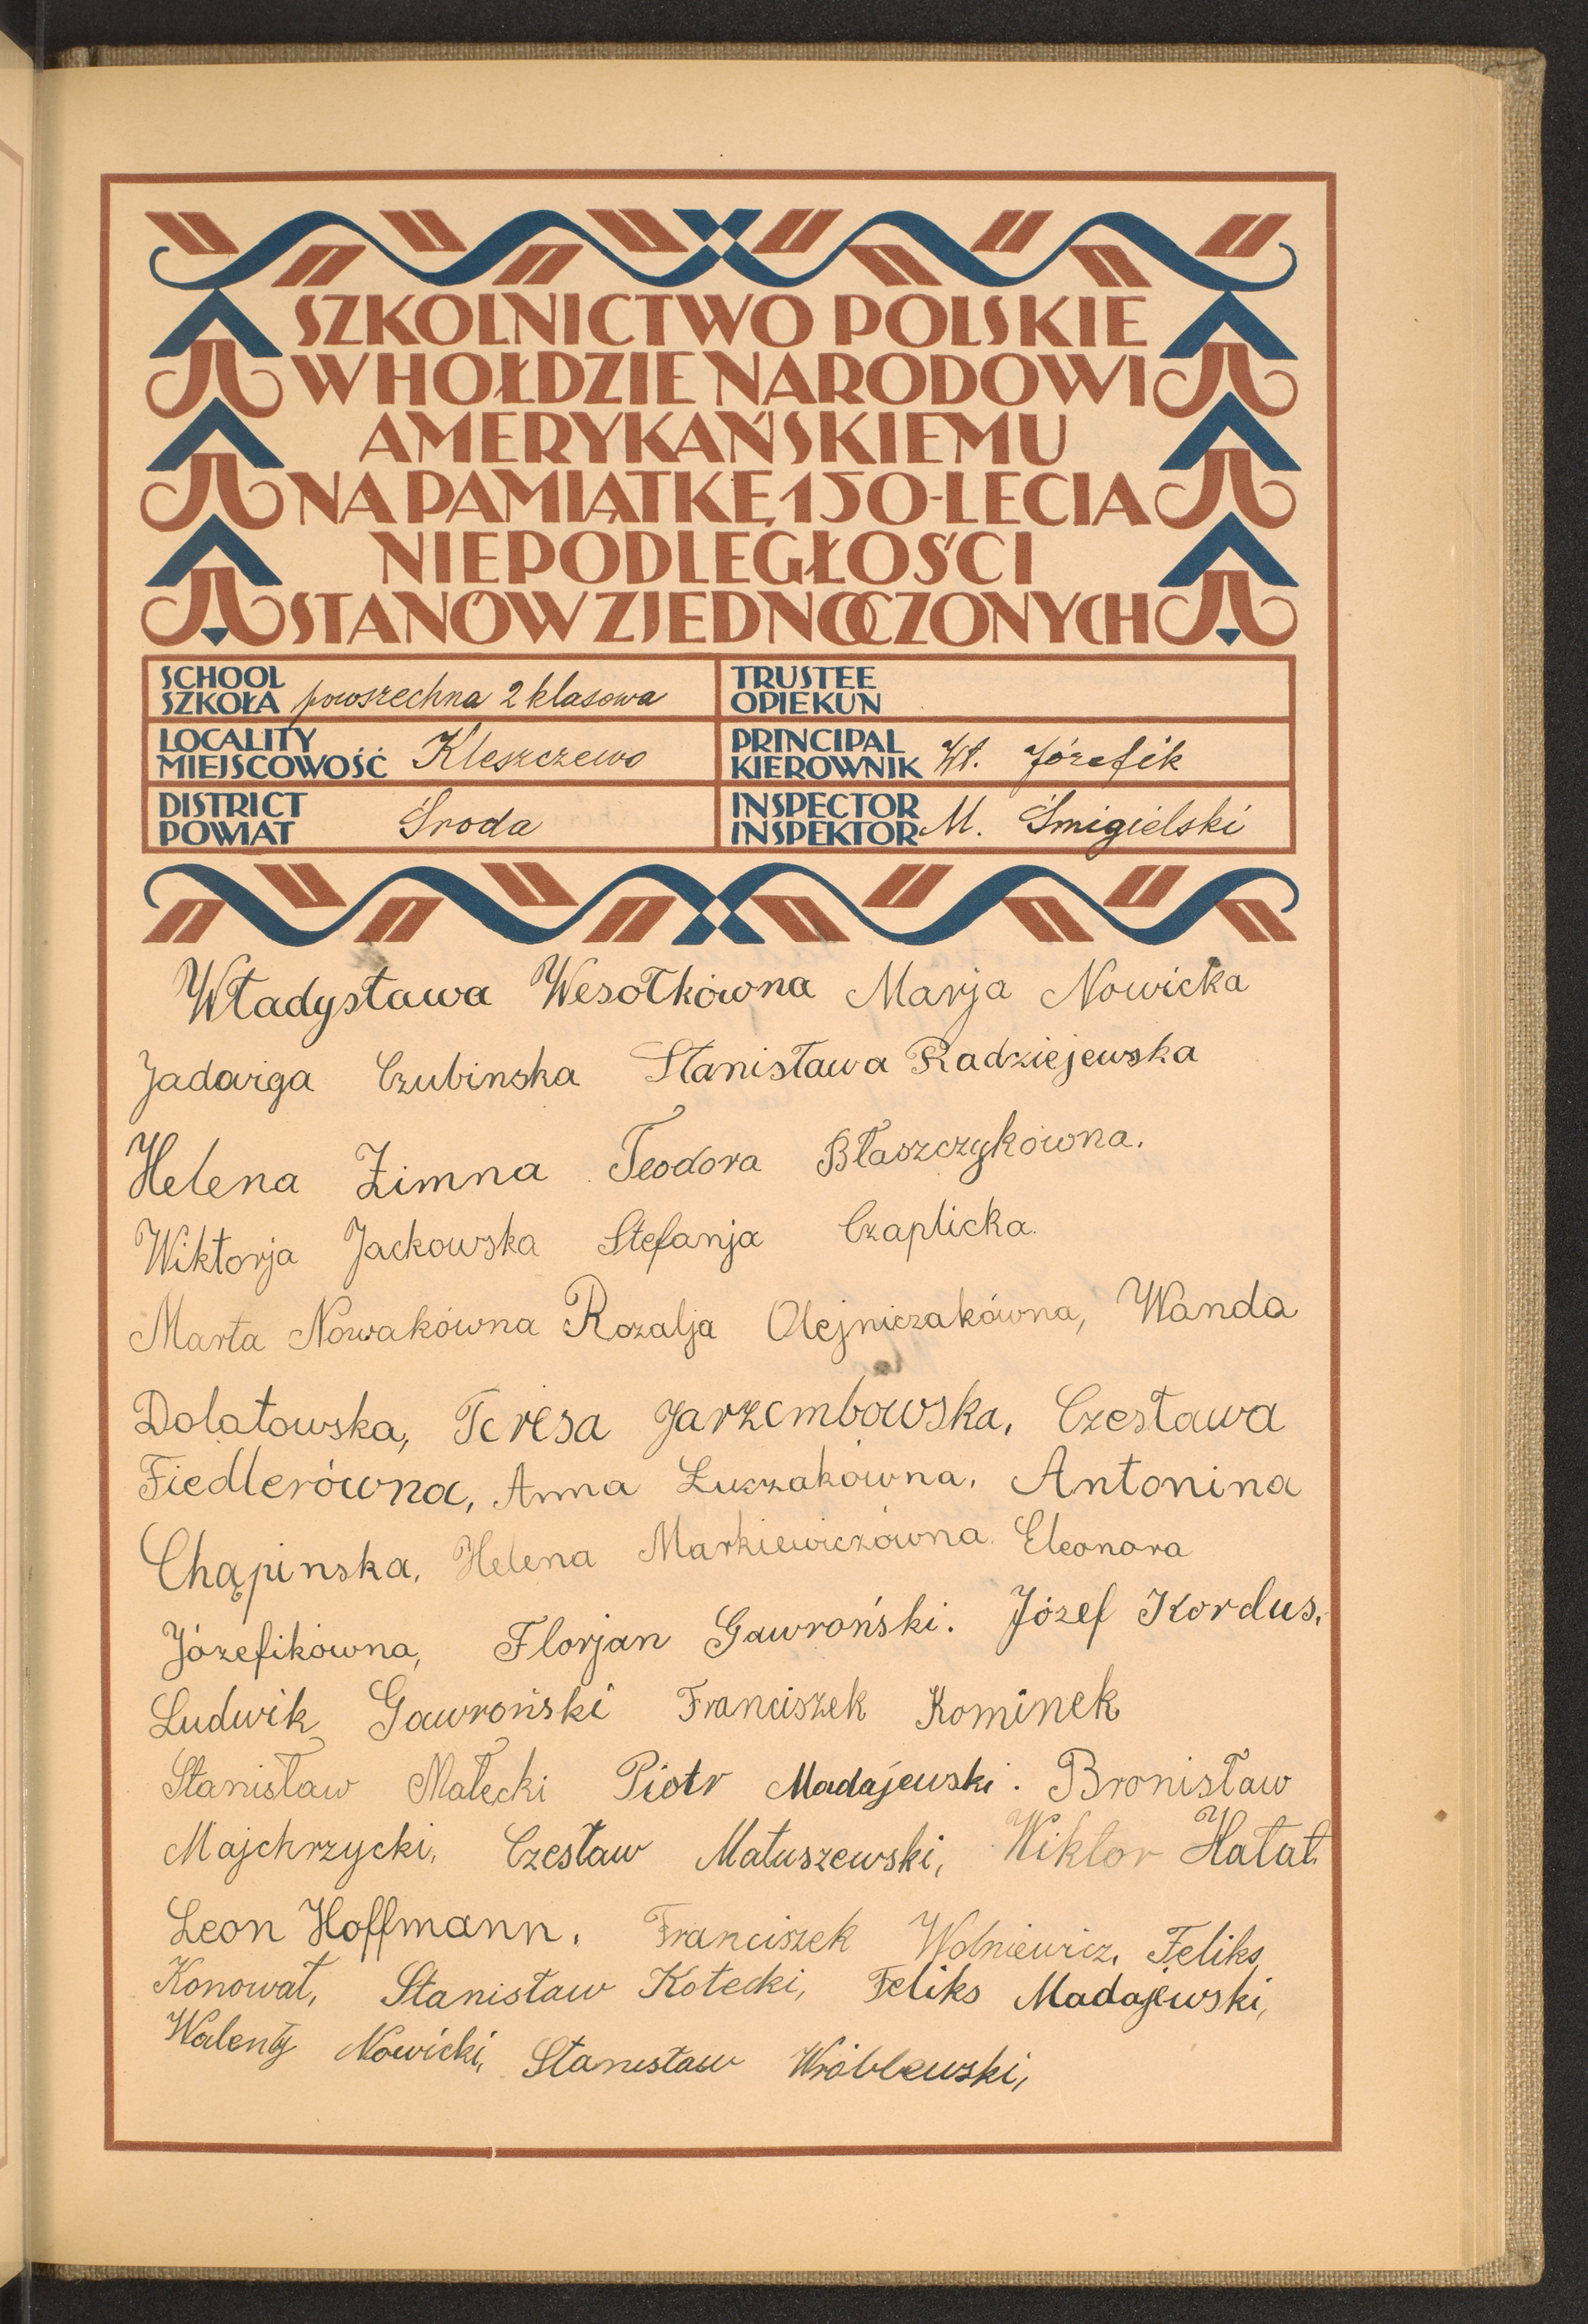 SZKOLNICTWO POLSKIE
W HOŁDZIE NARODOWI
AMERYKAŃSKIEMU
NA PAMIĄTKĘ 150-LECIA
NIEPODLEGŁOŚCI
STANÓW ZJEDNOCZONYCH
SCHOOL
SZKOŁA powszechna 2 klasowa
TRUSTEE
OPIEKUN
LOCALITY
MIEJSCOWOŚĆ Kleszczewo
PRINCIPAL
KIEROWNIK Wł. Józefik
DISTRICT
POWIAT Środa
INSPECTOR
INSPEKTOR M. Śmigielski
Władysława Wesołkówna Marja Nowicka
Jadwiga Czubinska Stanisława Radziejewska
Helena Zimna Teodora Błaszczykówna.
Wiktorja Jackowska Stefanja Czaplicka.
Marta Nowakówna Rozalja Olejniczakówna, Wanda
Dolatowska, Teresa Jarzembowska, Czesława
Fiedlerówna, Anna Łuczakówna, Antonina
Chąpinska, Helena Markiewiczówna. Eleonora
Józefikówna, Florjan Gawroński. Józef Kordus,
Ludwik Gawroński Franciszek Kominek
Stanisław Małecki Piotr Madajewski. Bronisław
Majchrzycki, Czesław Matuszewski, Wiktor Hałat.
Leon Hoffmann. Franciszek Wolniewicz, Feliks
Konował, Stanisław Kotecki, Feliks Madajewski,
Walenty Nowicki, Stanisław Wróblewski,